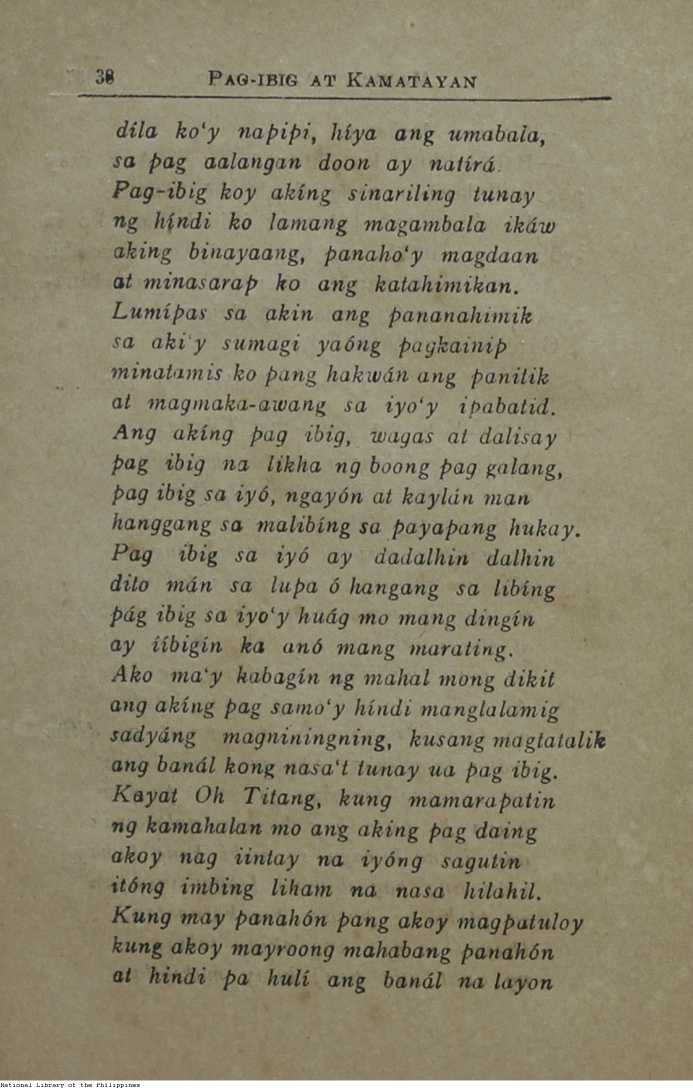 38 PAG-IBIG AT KAMATAYAN
díla ko‘y napipi, híya ang umabala,
sa pag aalangan doon ay natírá.
Pag-ibig koy akíng sinariling tunay
ng híndi ko lamang magambala ikáw
aking binayaang, panaho‘y magdaan
at minasarap ko ang katahimikan.
Lumípas sa akin ang pananahimik
sa aki‘y sumagi yaóng pagkainip
minatamis ko pang hakwán ang panitik
at magmaka-awang sa iyo‘y ipabatid.
Ang akíng pag ibig, wagas at dalisay
pag ibig na likha ng boong pag galang,
pag ibig sa iyó, ngayón at kaylán man
hanggang sa malibíng sa payapang hukay.
Pag ibig sa iyó ay dadalhin dalhin
dito mán sa lupa ó hangang sa libíng
pág ibig sa iyo‘y huág mo mang dingín
ay iíbigín ka anó mang marating.
Ako ma‘y kabagín ng mahal mong dikit
ang akíng pag samo‘y híndi manglalamig
sadyáng magniningning, kusang magtatalik
ang banál kong nasa‘t tunay ua pag ibig.
Kayat Oh Titang, kung mamarapatin
ng kamahalan mo ang aking pag daing
akoy nag iintay na iyóng sagutin
itóng imbing liham na nasa hilahil.
Kung may panahón pang akoy magpatuloy
kung akoy mayroong mahabang panahón
at hindi pa hulí ang banál na layon
National Library of the Philippines